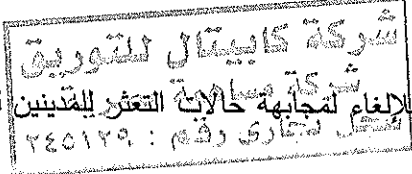 شركة كابيتال للتوريق
شركة مساهمة
للإلغاء لمجابهة حالات التعثر للمدينين
سجل تجارى رقم : ٢٤٥١٢٩